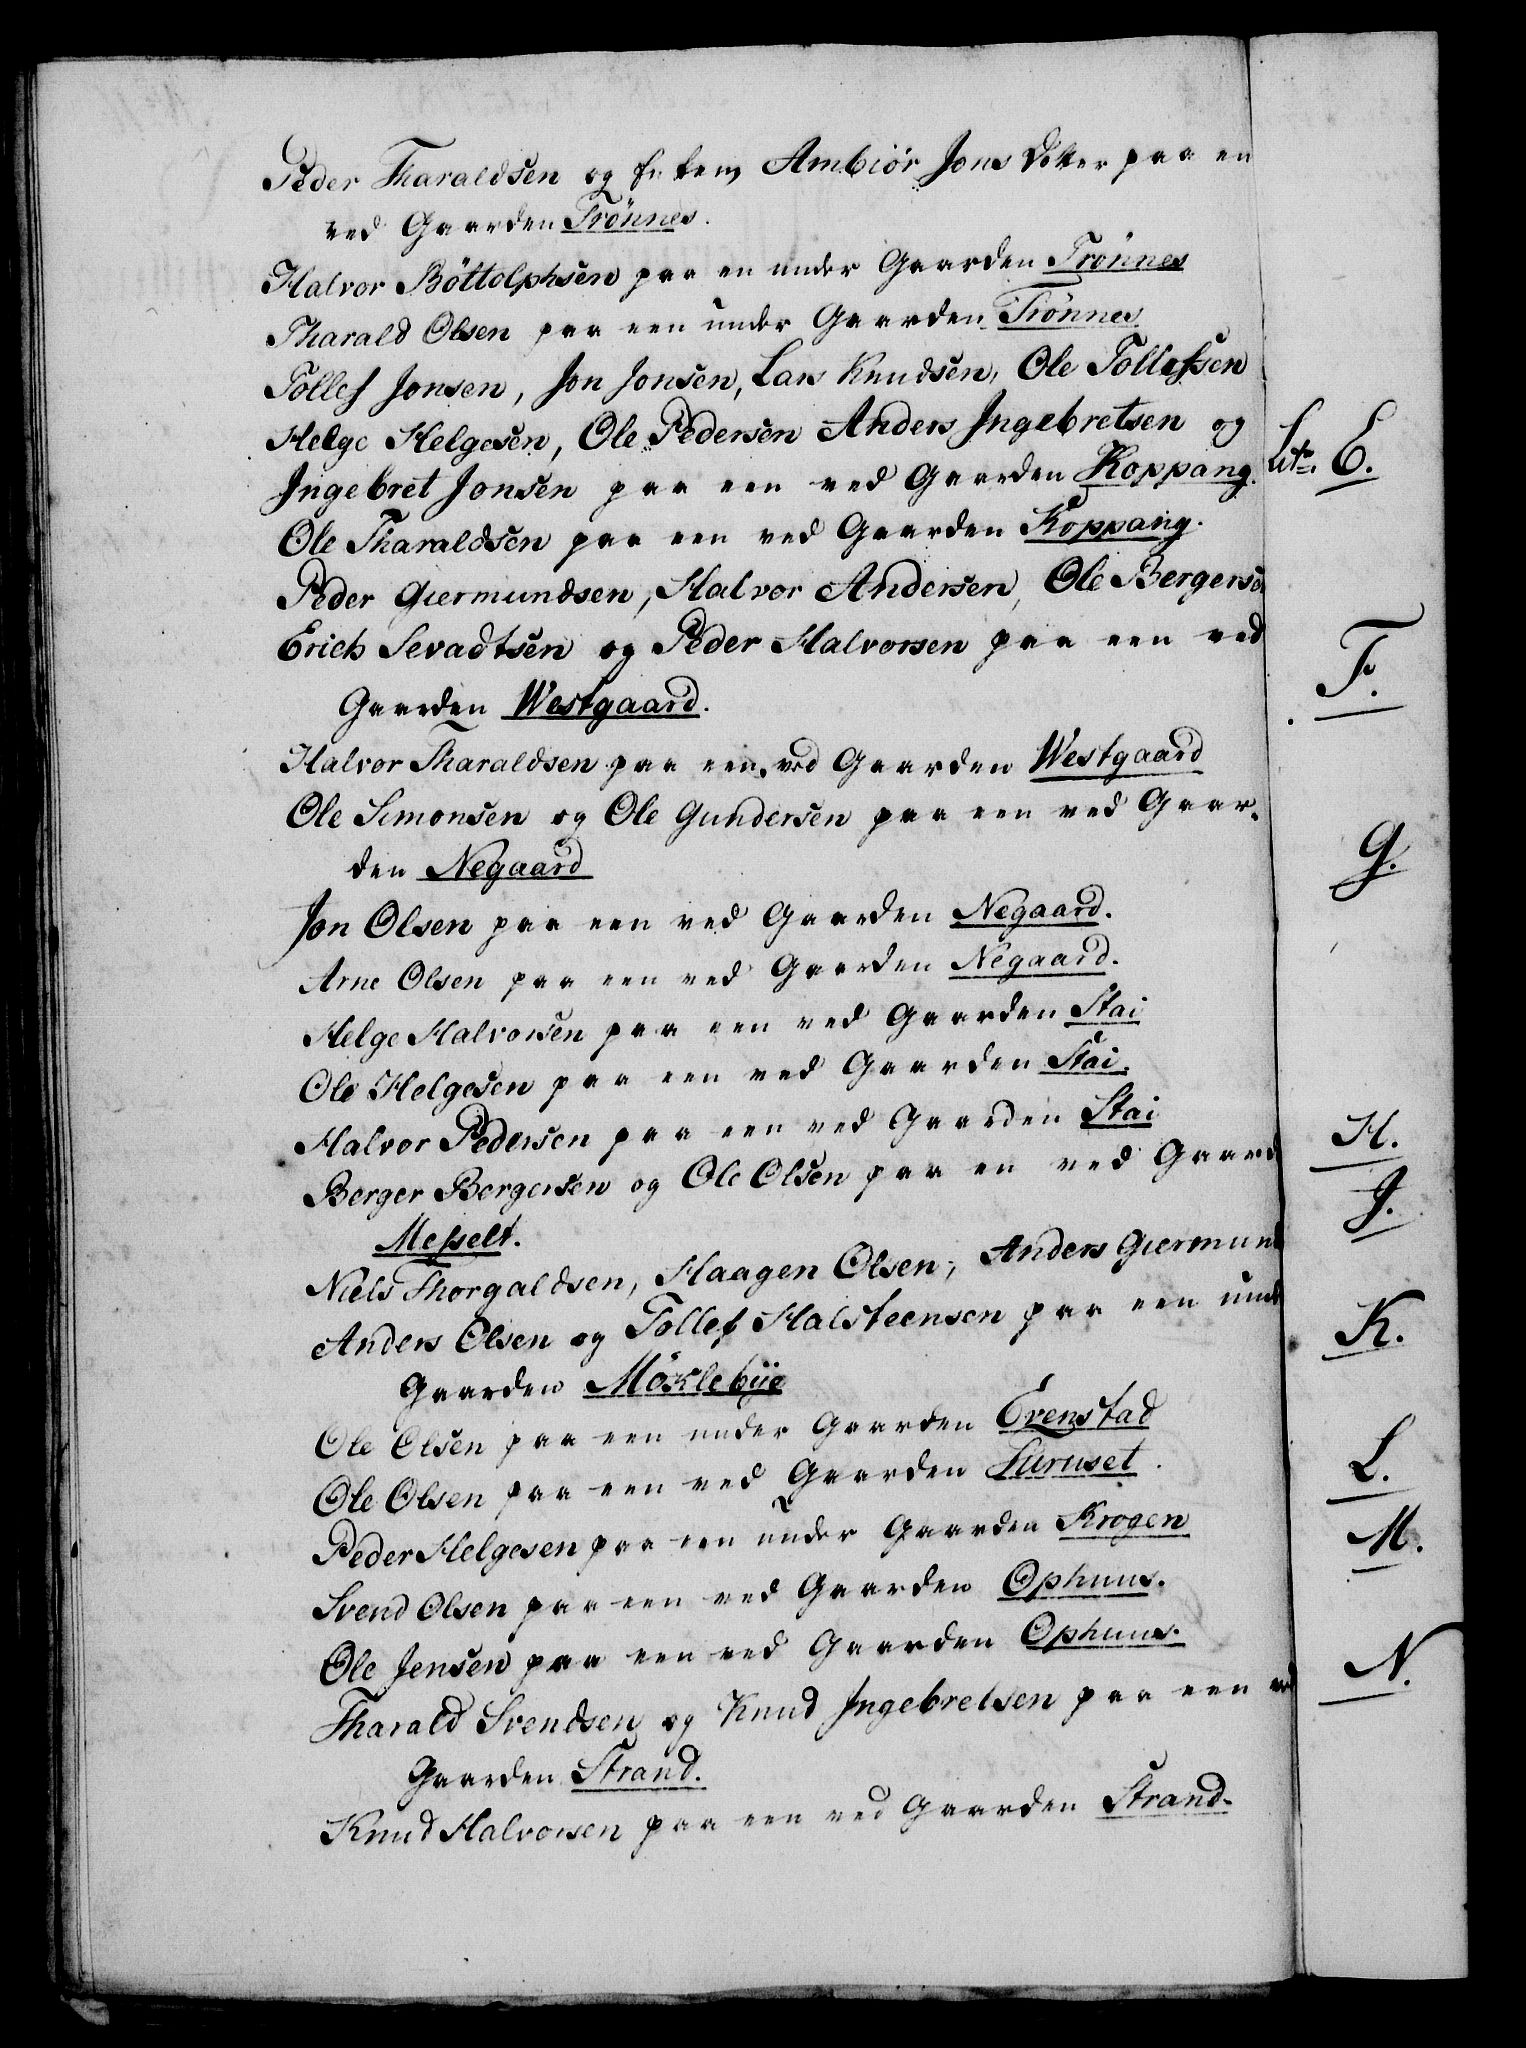 Peder Tharaldsen og Enken Ambiör Jons Dotter paa en
ved Gaarden Trönnes.
Halvor Böttolphsen paa en under Gaarden Trönnes
Tharald Olsen paa een under Gaarden Trönnes
Tollef Jonsen, Jon Jonsen, Lars Knudsen, Ole Tollefsen
Helge Helgesen, Ole Pedersen Anders Ingebretsen og
Ingebret Jonsen paa een ved Gaarden Koppang.
Litr. E.
Ole Tharaldsen paa een ved Gaarden Koppang.
Peder Giermundsen, Halvor Andersen, Ole Bergersen
Erich Sevadtsen og Peder Halvorsen paa een ved
F.
Gaarden Westgaard.
Halvor Tharaldsen paa een ved Gaarden Westgaard
Ole Simonsen og Ole Gundersen paa een ved Gaar-
G.
den Negaard
Jon Olsen paa een ved Gaarden Negaard.
Arne Olsen paa een ved Gaarden Negaard.
Helge Halvorsen paa een ved Gaarden Stai
Ole Helgesen paa een ved Gaarden Stai.
Halvor Pedersen paa een ved Gaarden Stai
H.
Berger Bergersen og Ole Olsen paa en ved Gaard
J.
Messelt.
Niels Thorgaldsen, Haagen Olsen, Anders Giermund
Anders Olsen og Tollef Halsteensen paa een und
K.
Gaarden Möklebye
Ole Olsen paa een under Gaarden Evenstad
L.
Ole Olsen paa een ved Gaarden Furuset.
M.
Peder Helgesen paa een under Gaarden Krogen
Svend Olsen paa een ved Gaarden Ophuus.
N.
Ole Jensen paa een ved Gaarden Ophuus.
Tharald Svendsen og Knud Ingebretsen paa een ved
Gaarden Strand.
Knud Halvorsen paa een ved Gaarden Strand.